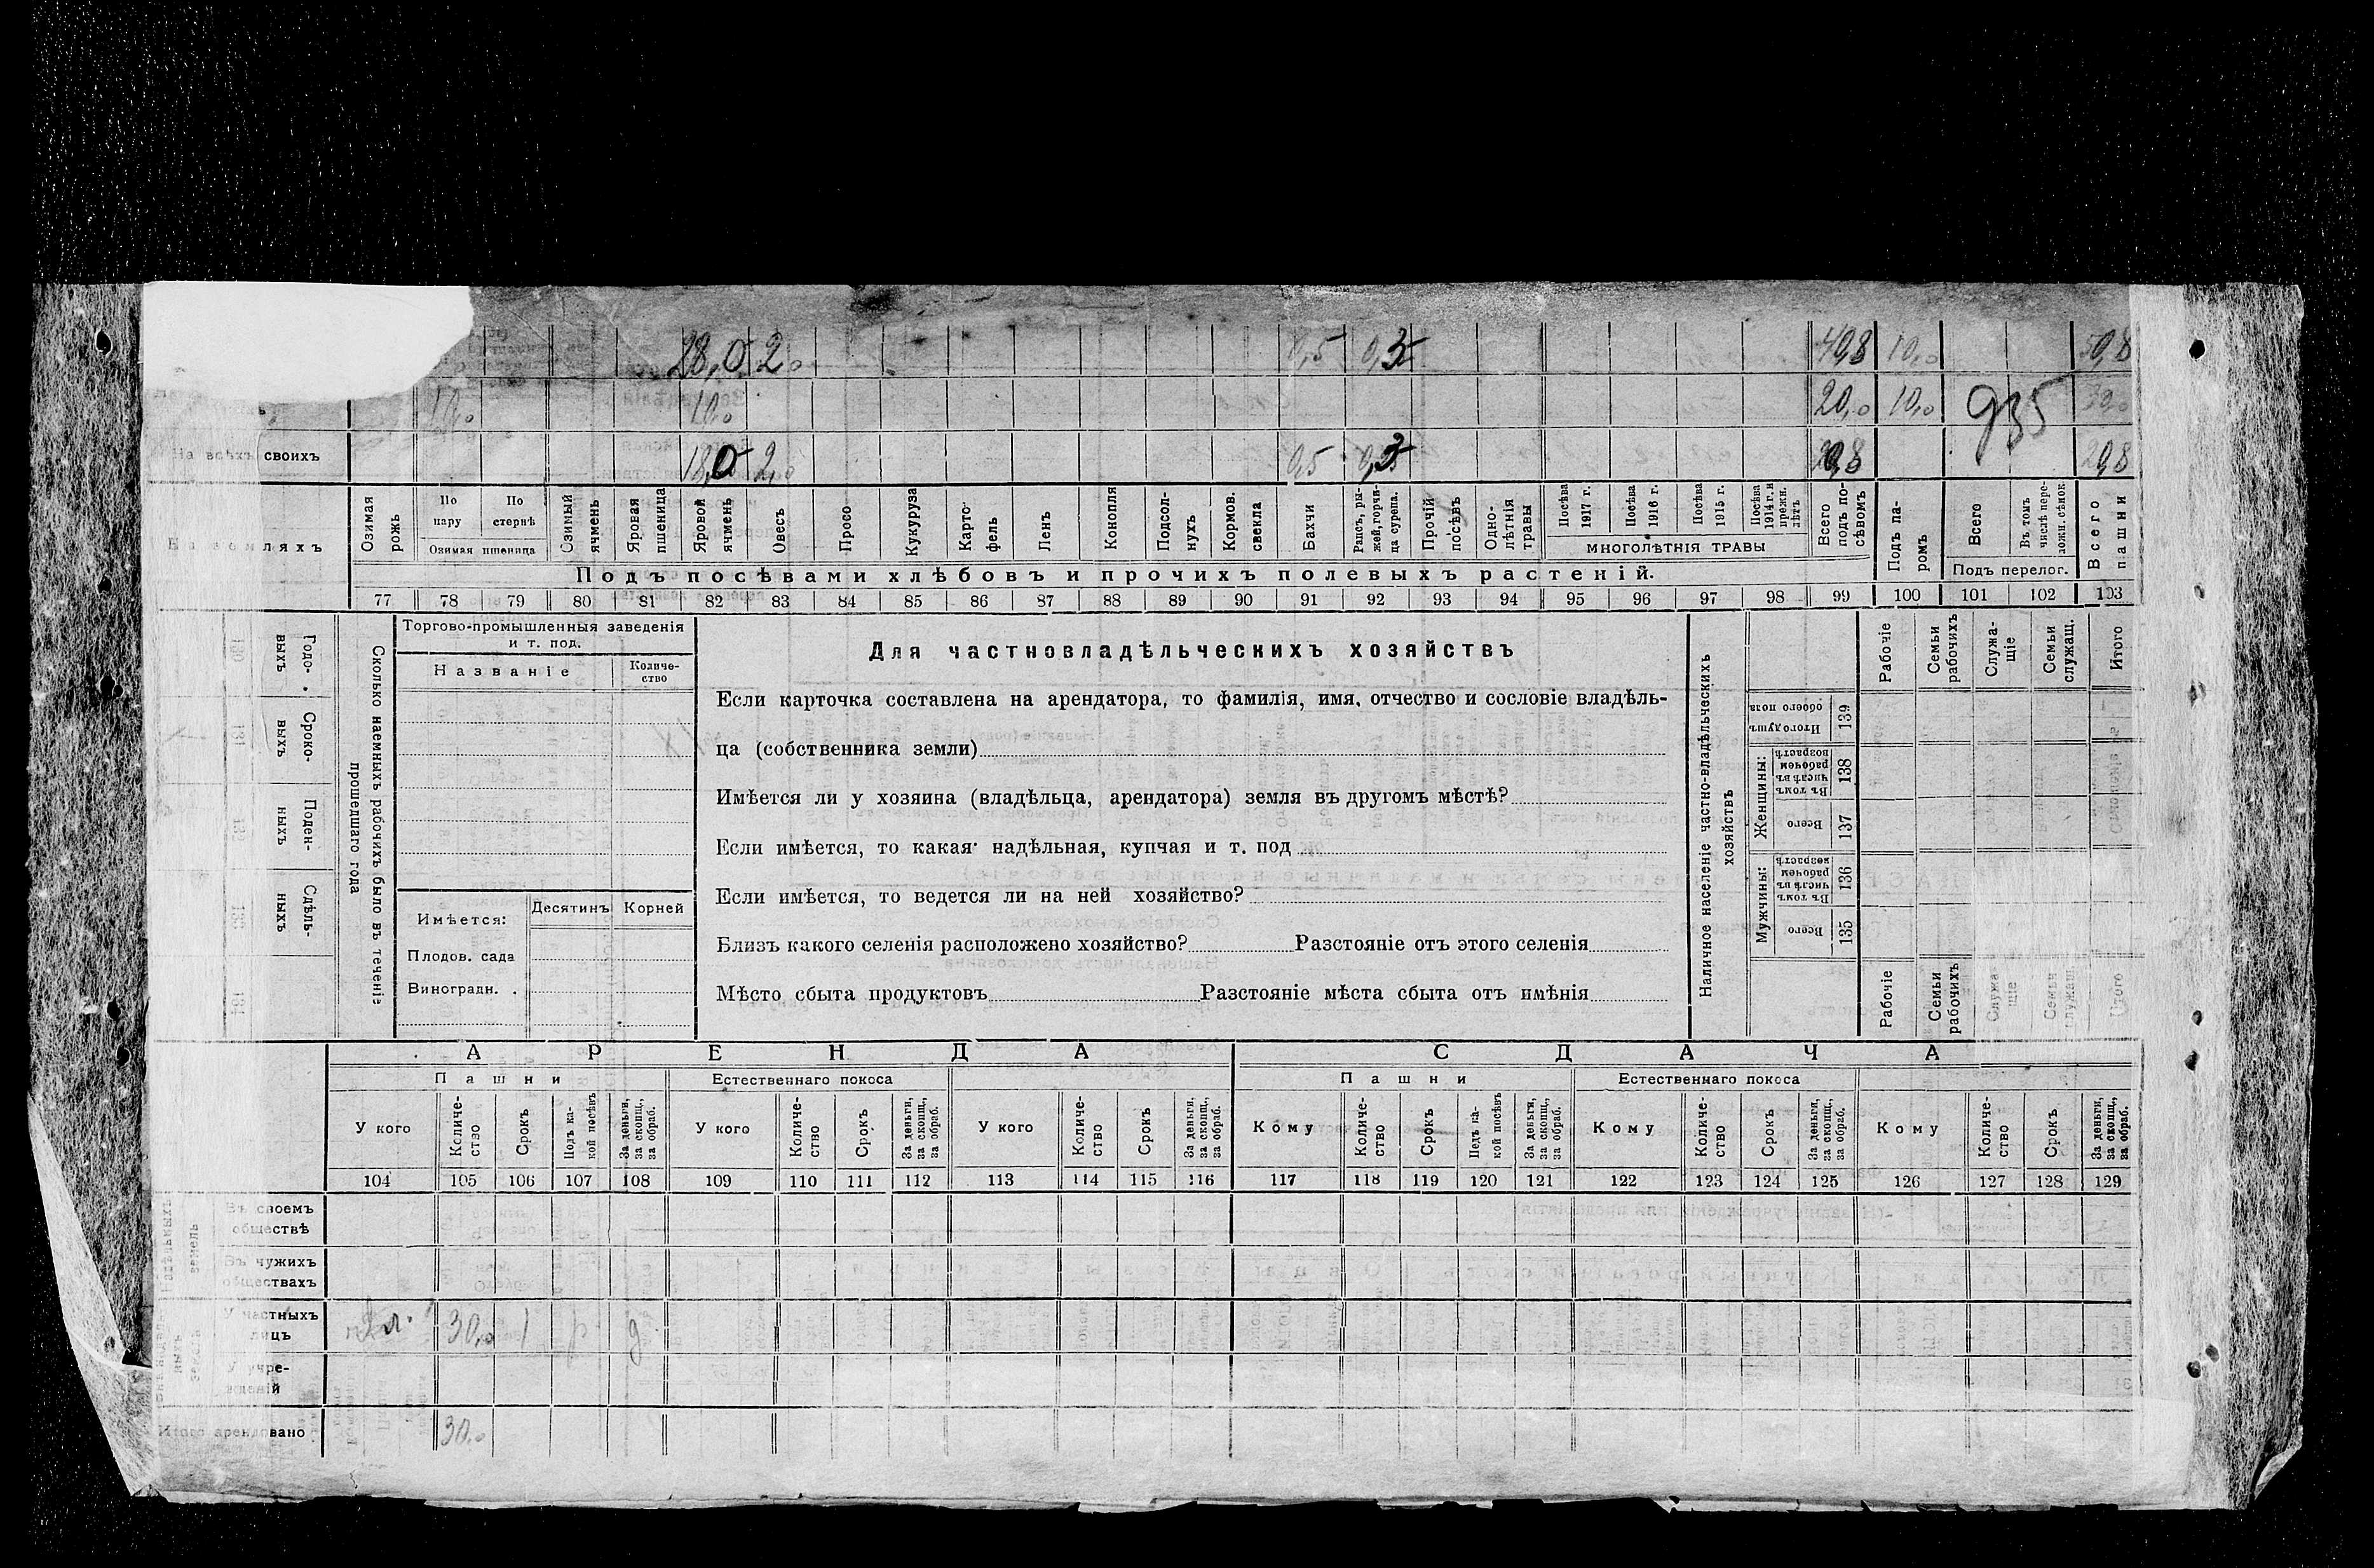 28,0 2,0 0,5 0,3 40,8 10,0 50,8
10,0 10,0 20,0 10,0 935 30,0
На всѣхъ своихъ 18,0 2,0 0,5 0,3 20,8 20,8
На земляхъ
Озимая рожь
По пару
По стернѣ
Озимая пшеница
Озимый ячмень
Яровая пшеница
Яровой ячмень
Овесъ
Просо
Кукуруза
Картофель
Ленъ
Конопля
Подсолнухъ
Кормов. свекла
Бахчи
Рапсъ, рыжей, горчица сурепа.
Прочій посѣвъ
Однолѣтнія травы
Посѣва 1917 г.
Посѣва 1916 г.
Посѣва 1915 г.
Посѣва 1914 г. и прежн. лѣтъ
МНОГОЛѢТНІЯ ТРАВЫ
Всего подъ посѣвомъ
Подъ паромъ
Всего
Въ томъ числѣ переложн. сѣнок.
Подъ перелог.
Всего пашни
Подъ посѣвами хлѣбовъ и прочихъ полевыхъ растеній.
77 78 79 80 81 82 83 84 85 86 87 88 89 90 91 92 93 94 95 96 97 98 99 100 101 102 103
130 Годовыхъ
131 Сроковыхъ
132 Поденныхъ
133 Сдѣльныхъ
134
Сколько наемныхъ рабочихъ было въ теченіе
прошедшаго года
Торгово-промышленныя заведенія
и т. под.
Названіе
Количество
Имѣется:
Десятинъ Корней
Плодов. сада
Виноградн. .
Для частновладѣльческихъ хозяйствъ
Если карточка составлена на арендатора, то фамилія, имя, отчество и сословіе владѣль-
ца (собственника земли)
Имѣется ли у хозяина (владѣльца, арендатора) земля въ другомъ мѣстѣ?
Если имѣется, то какая: надѣльная, купчая и т. под
Если имѣется, то ведется ли на ней хозяйство?
Близъ какого селенія расположено хозяйство? Разстояніе отъ этого селенія
Мѣсто сбыта продуктовъ Разстояніе мѣста сбыта отъ имѣнія
Наличное населеніе частно-владѣльческихъ
хозяйствъ
Рабочіе
Семьи рабочихъ
Служащіе
Семьи служащ.
Итого
Итого душъ обоего пола 139
Женщины:
Въ томъ числѣ въ рабочем возрастѣ 138
Всего 137
Мужчины:
Въ томъ числѣ въ рабочем возрастѣ 136
Всего 135
Рабочіе
Семьи рабочихъ
Служащіе
Семьи служащ.
Итого
АРЕНДА СДАЧА
Пашни Естественнаго покоса Пашни Естественнаго покоса
У кого
Количество
Срокъ
Подъ какой посѣвъ
За деньги, за скопщ., за обраб.
У кого
Количество
Срокъ
За деньги, за скопщ., за обраб.
У кого
Количество
Срокъ
За деньги, за скопщ., за обраб.
Кому
Количество
Срокъ
Подъ какой посѣвъ
За деньги, за скопщ., за обраб.
Кому
Количество
Срокъ
За деньги, за скопщ., за обраб.
Кому
Количество
Срокъ
За деньги, за скопщ., за обраб.
104 105 106 107 108 109 110 111 112 113 114 115 116 117 118 119 120 121 122 123 124 125 126 127 128 129
Въ своемъ
обществѣ
Въ чужихъ
обществахъ
У частныхъ
лицъ 30,0 1 р д
У учре-
жденій
Итого арендовано 30,0